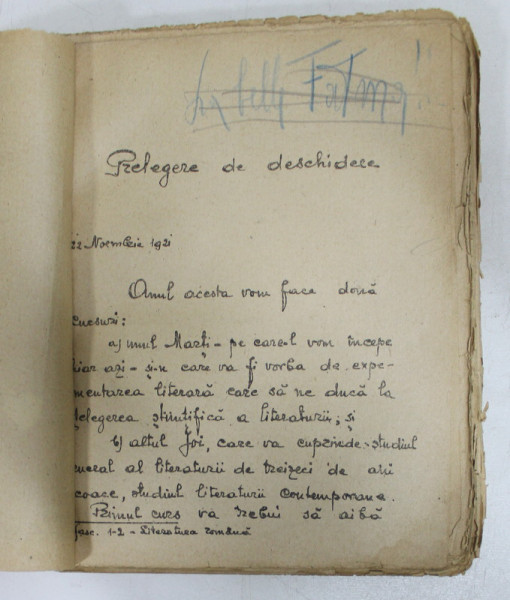 La belle Fatma!!
Prelegere de deschidere
22 Noembrie 1921
Anul acesta vom face două
cursuri:
a) unul Marți - pe care-l vom începe
hiar azi - și-n care va fi vorba de expe-
mentarea literară care să ne ducă la
țelegerea științifică a literaturii; și
b) altul Joi, care va cuprinde studiul
neral al literaturii de treizeci de ani
coace, studiul literaturii contemporane.
Primul curs va trebui să aibă
fasc. 1-2 - Literatura română